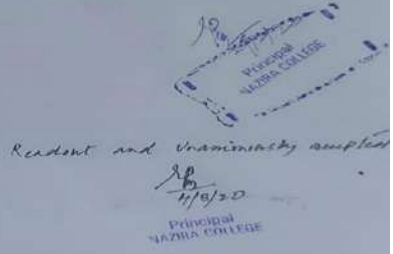 Principal
NAZIRA COLLEGE
Readout and Unanimously accepted
4/8/20
Principal
NAZIRA COLLEGE